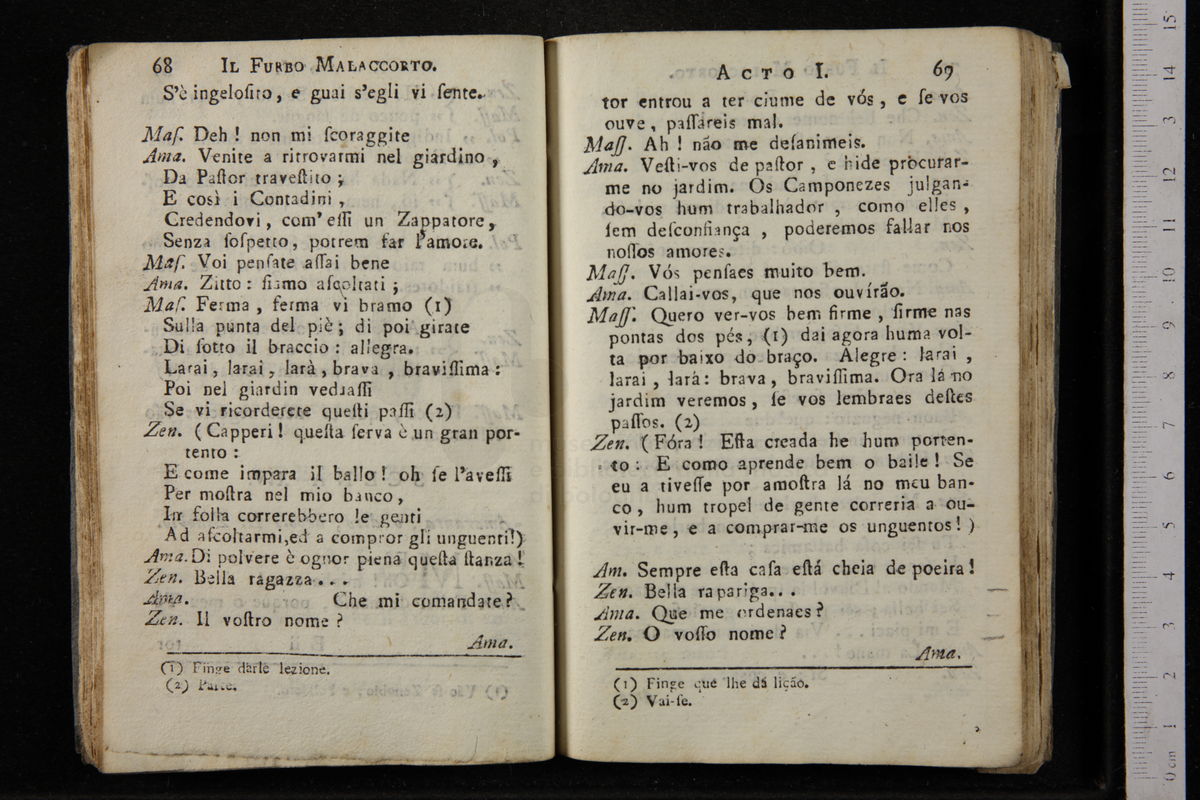 68 IL FURBO MALACCORTO.
S'è ingeloſito, e guai s'egli vi ſente.
Maſ. Deh! non mi ſcoraggite
Ama. Venite a ritrovarmi nel giardino,
Da Paſtor traveſtito;
E così i Contadini,
Credendovi, com' eſſi un Zappatore,
Senza ſoſpetto, potrem far l'amore.
Maſ. Voi penſate aſſai bene
Ama. Zitto: ſiamo aſcoltati;
Maſ. Ferma, ferma vi bramo (1)
Sulla punta del piè; di poi girate
Di ſotto il braccio: allegra.
Larai, larai, larà, brava, braviſſima:
Poi nel giardin vedraſſi
Se vi ricorderete queſti paſſi (2)
Zen. (Capperi! queſta ſerva è un gran por-
tento:
E come impara il ballo! oh ſe l'aveſſi
Per moſtra nel mio banco,
In folla correrebbero le genti
Ad aſcoltarmi, ed a compror gli unguenti!)
Ama. Di polvere è ognor piena queſta ſtanza!
Zen. Bella ragazza...
Ama. Che mi comandate?
Zen. Il voſtro nome?
Ama.
(1) Finge darle lezione.
(2) Parte.
ACTO I. 69
tor entrou a ter ciume de vós, e ſe vos
ouve, paſſareis mal.
Maſſ. Ah! não me deſanimeis.
Ama. Veſti-vos de paſtor, e hide procurar-
me no jardim. Os Camponezes julgan-
do-vos hum trabalhador, como elles,
ſem deſconfiança, poderemos fallar nos
noſſos amores.
Maſſ. Vós penſaes muito bem.
Ama. Callai-vos, que nos ouvírão.
Maſſ. Quero ver-vos bem firme, firme nas
pontas dos pés, (1) dai agora huma vol-
ta por baixo do braço. Alegre: larai,
larai, lará: brava, braviſſima. Ora lá no
jardim veremos, ſe vos lembraes deſtes
paſſos. (2)
Zen. (Fóra! Eſta creada he hum porten-
to: E como aprende bem o baile! Se
eu a tiveſſe por amoſtra lá no meu ban-
co, hum tropel de gente correria a ou-
vir-me, e a comprar-me os unguentos!)
Am. Sempre eſta caſa eſtá cheia de poeira!
Zen. Bella rapariga...
Ama. Que me ordenaes?
Zen. O voſſo nome?
Ama.
(1) Finge que lhe dá lição.
(2) Vai-ſe.
0 cm 1 2 3 4 5 6 7 8 9 10 11 12 13 14 15